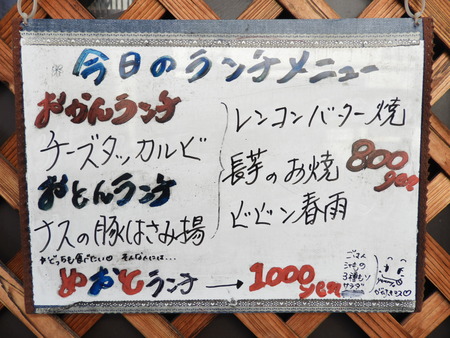 今日のランチメニュー
おかんランチ
チーズタッカルビ
おとんランチ
ナスの豚はさみ揚
レンコンバター焼
長芋のお焼
ビビン春雨
800yen
*どっちも食べたい♡ そんな人には…
めおとランチ → 1000yen
ごはん
サラダ